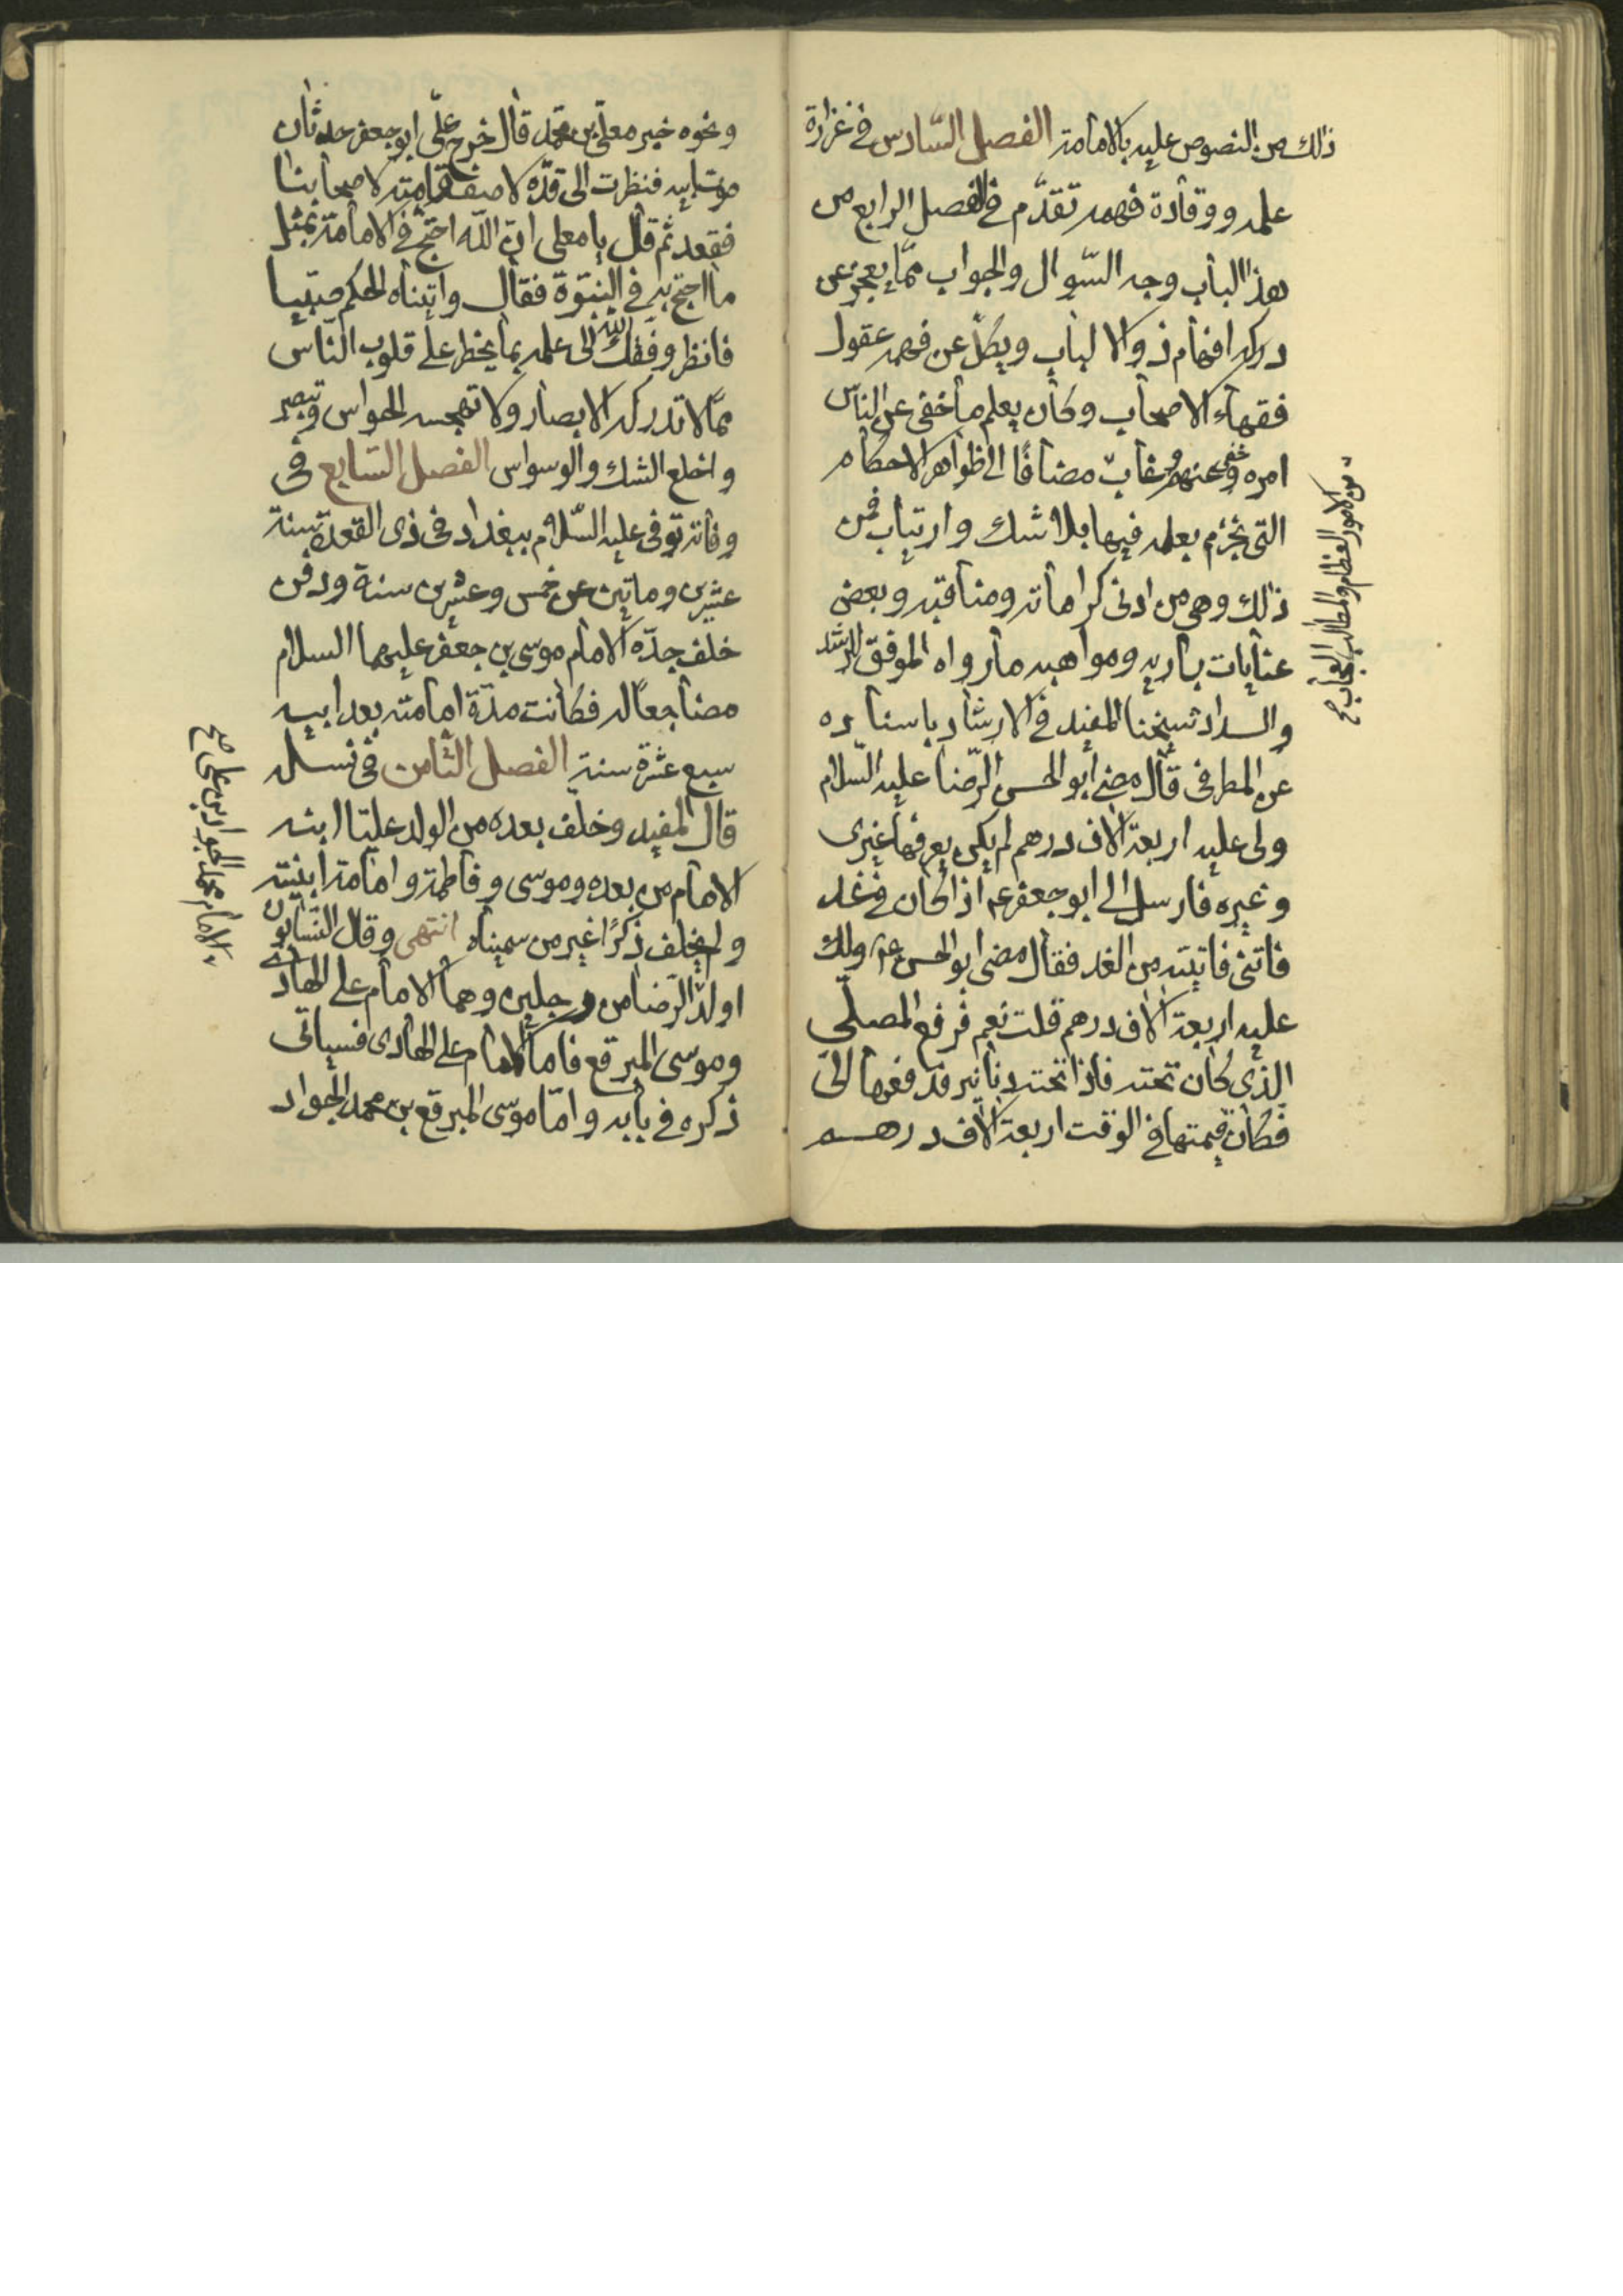 ذلك من النصوص عليه بالامامة الفصل السّادس فى غزارة
علمه ووقادة فهمه تقدّم فى الفصل الرابع من
هذا الباب وجه السّوال والجواب ممّا يعجز عن
دركه افهام ذوالالباب ويكلّ عن فهمه عقول
فقهاء الاصحاب وكان يعلم ما خفى عن النّاس
امره وخفى عنهم وغاب مضافًا الى ظواهر الاحكام
التى نجزم بعلمه فيها بلا شك وارتياب فمن
ذلك وهى من ادنى كراماته ومناقبه وبعض
عنايات باريه ومواهبه ما رواه الموفق للرشد
والسداد شيخنا المفيد فى الارشاد باسناده
عن المطرفى قال مضى ابو الحسن الرّضا عليه السّلام
ولى عليه اربعة الاف درهم لم يكن يعرفها غيرى
وغيره فارسل الى ابو جعفر ع اذا كان فى غد
فاتنى فاتيته من الغد فقال مضى ابو الحسن ع ولك
عليه اربعة الاف درهم قلت نعم فرفع المصلّى
الذى كان تحته فاذا تحته دنانير فدفعها الىّ
فكان قيمتها فى الوقت اربعة الاف درهم
من الامور العظام والمطالب العجاب صح
ونحوه خبر معلّى بن محمّد قال خرج علىّ ابو جعفر حدثان
موت ابيه فنظرت الى قدّه لاصف قامته لاصحابنا
فقعد ثم قال يا معلى انّ اللّه احتج فى الامامة بمثل
ما احتج به فى النبوّة فقال واتيناه الحكم صبيّيا
فانظر وفقك اللّه الى علمه بما يخطر على قلوب النّاس
ممّا لا تدركه الابصار ولا تهجسه الحواس وتبصر
واخلع الشك والوسواس الفصل السّابع فى
وفاته توفى عليه السّلام ببغداد فى ذى القعدة سنة
عشرين وماتين عن خمس وعشرين سنة ودفن
خلف جدّه الامام موسى بن جعفر عليهما السلام
مضاجعًا له فكانت مدّة امامته بعد ابيه
سبع عشرة سنة الفصل الثّامن فى نسله
قال المفيد وخلف بعده من الولد عليّا ابنه
الامام من بعده وموسى وفاطمة وامامة ابنيته
ولم يخلف ذكرًا غير من سميناه انتهى وقال النسّابون
اولد الرّضا من رجلين وهما الامام على الهادى
وموسى المبرقع فاما الامام على الهادى فسياتى
ذكره فى بابه وامّا موسى المبرقع بن محمد الجواد
الامام محمد الجواد بن على صح